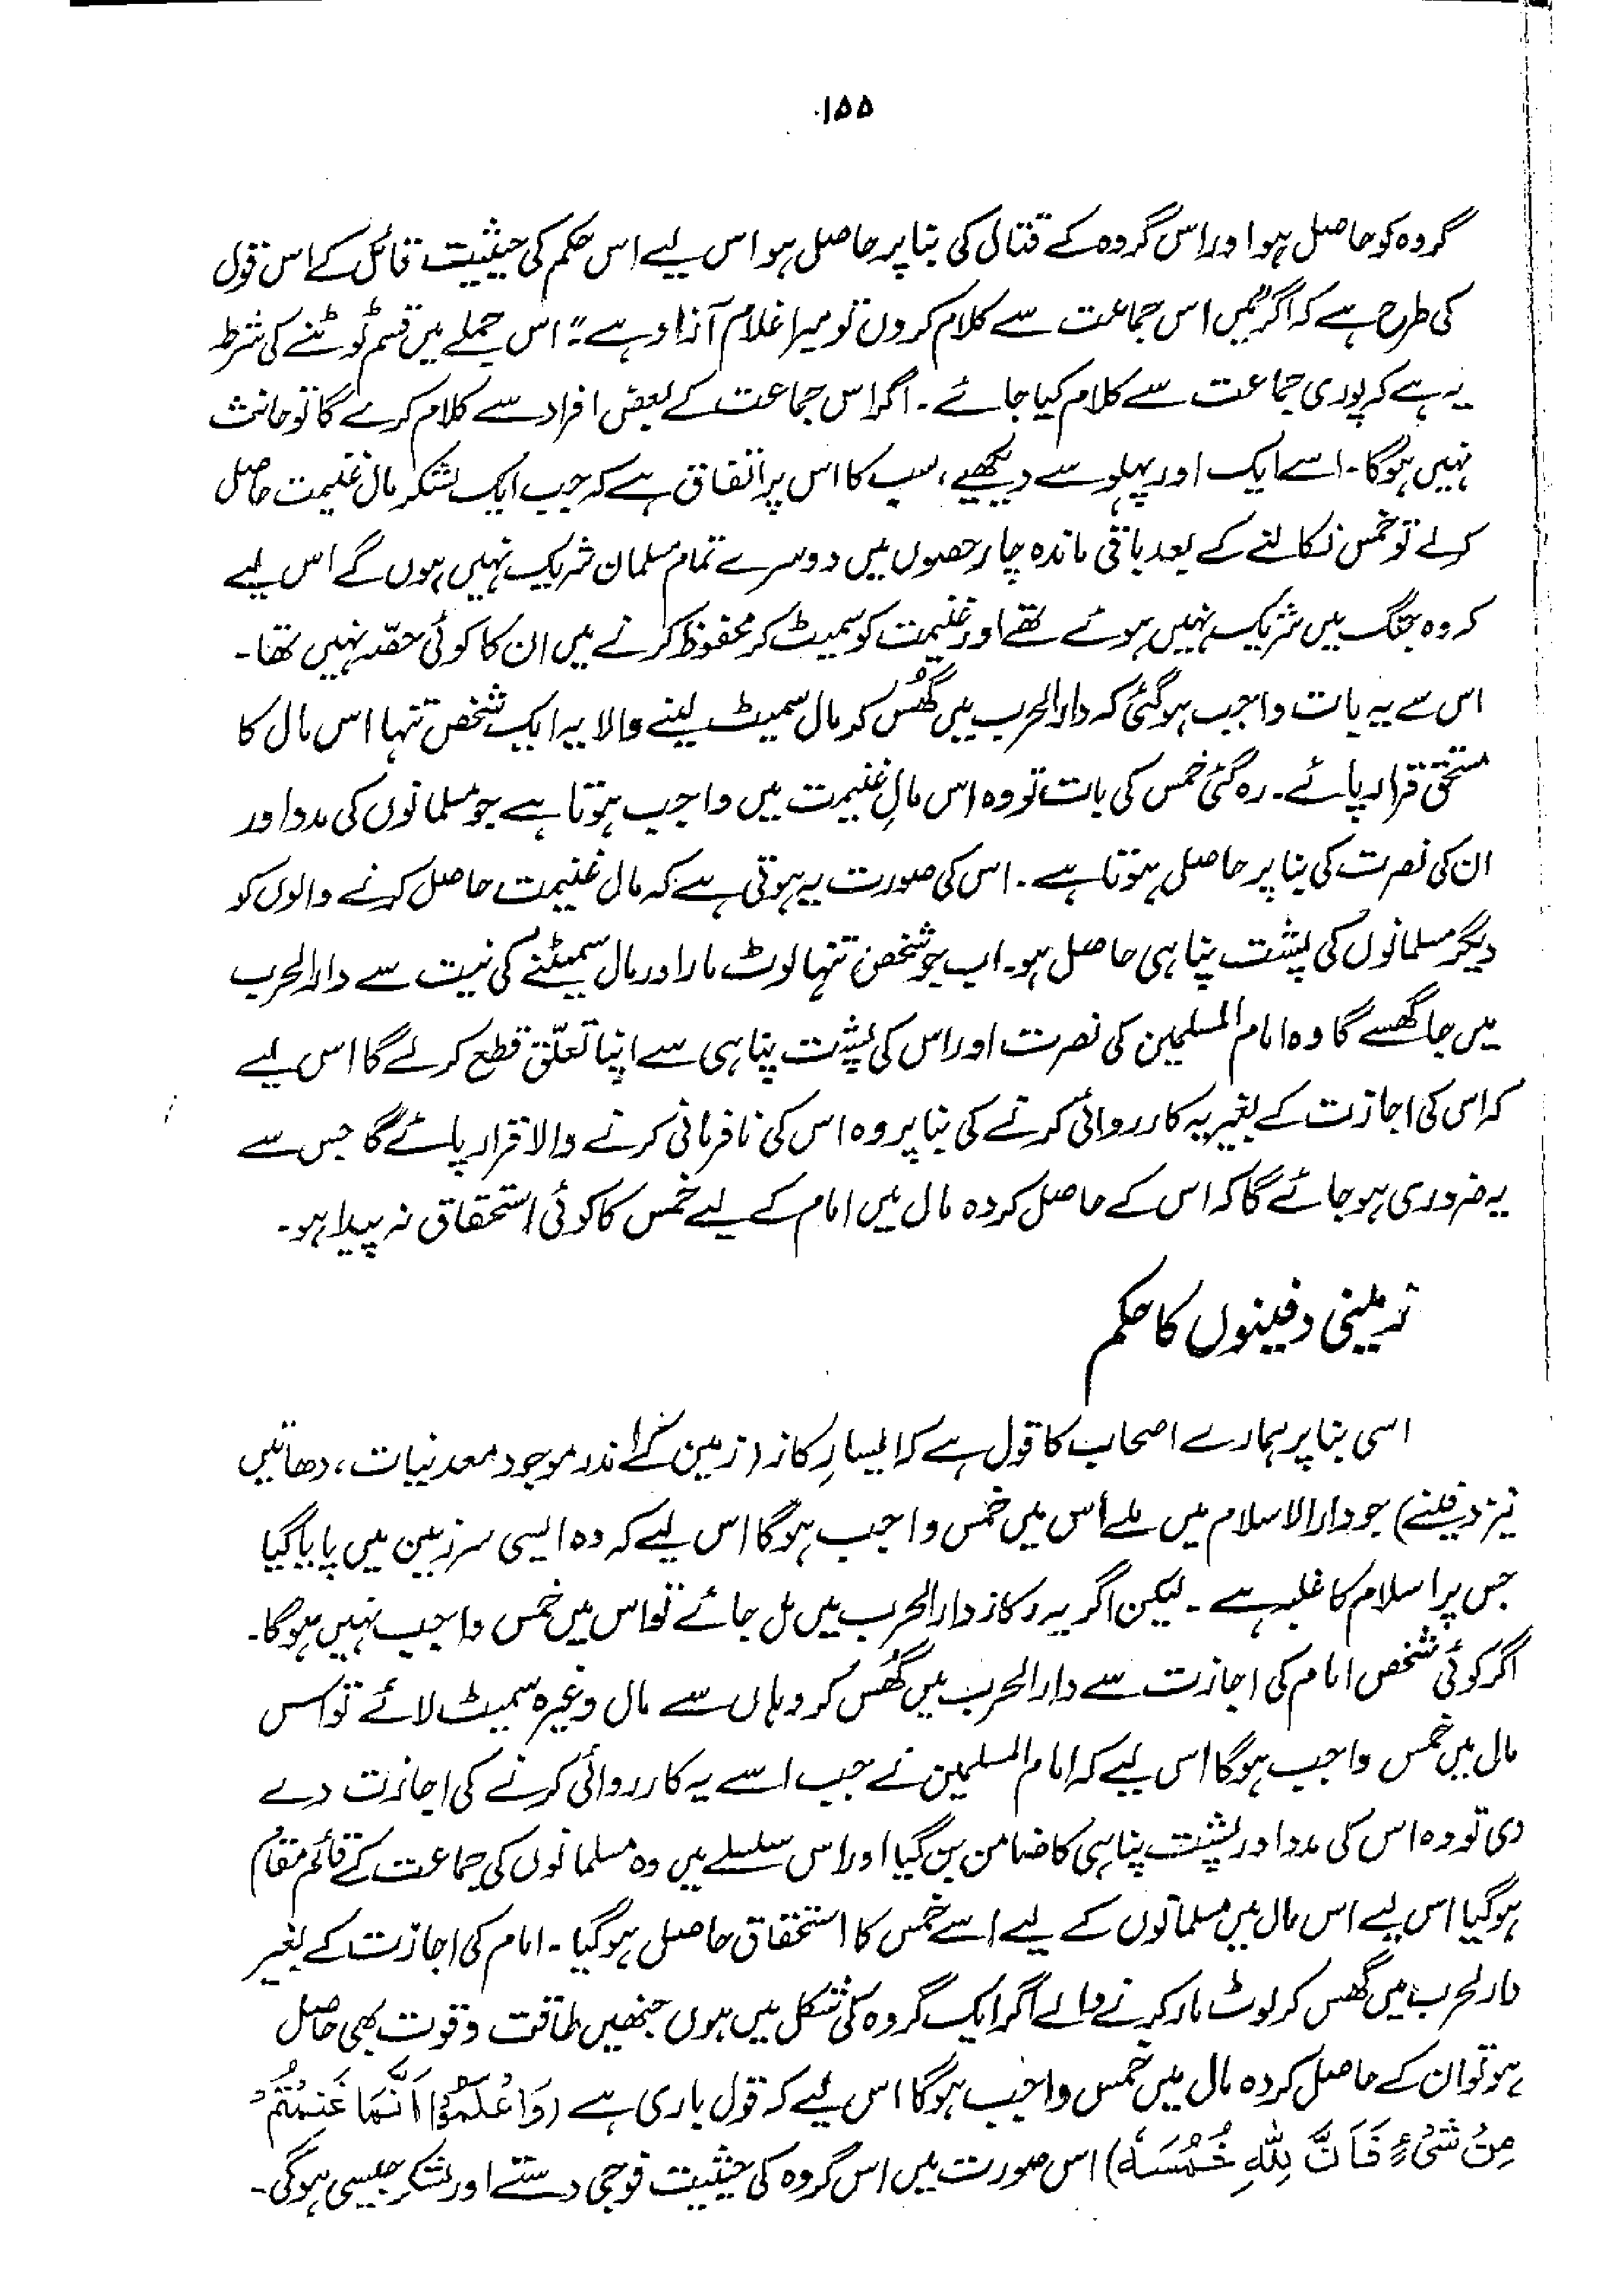 ۱۵۵
گروہ کو حاصل ہوا اور اس گروہ کے قتال کی بنا پر حاصل ہو اس لیے اس حکم کی حیثیت قائل کے اس قول
کی طرح ہے کہ اگر میں اس جماعت سے کلام کروں تو میرا غلام آزاد ہے"۔ اس جملے میں قسم ٹوٹنے کی شرط
یہ ہے کہ پوری جماعت سے کلام کیا جائے۔ اگر اس جماعت کے بعض افراد سے کلام کرے گا تو حانث
نہیں ہوگا۔ اسے ایک اور پہلو سے دیکھیے، سب کا اس پر اتفاق ہے کہ جب ایک لشکر مال غنیمت حاصل
کرلے تو خمس نکالنے کے بعد باقی ماندہ چار حصوں میں دوسرے تمام مسلمان شریک نہیں ہوں گے اس لیے
کہ وہ جنگ میں شریک نہیں ہوئے تھے اور غنیمت کو سمیٹ کر محفوظ کرنے میں ان کا کوئی حصّہ نہیں تھا۔
اس سے یہ بات واجب ہوگئی کہ دارالحرب میں گھُس کر مال سمیٹ لینے والا یہ ایک شخص تنہا اس مال کا
مستحق قرار پائے۔ رہ گئی خمس کی بات تو وہ اس مالِ غنیمت میں واجب ہوتا ہے جو مسلمانوں کی مدد اور
ان کی نصرت کی بنا پر حاصل ہوتا ہے۔ اس کی صورت یہ ہوتی ہے کہ مال غنیمت حاصل کرنے والوں کو
دیگر مسلمانوں کی پشت پناہی حاصل ہو۔ اب جو شخص تنہا لوٹ مار اور مال سمیٹنے کی نیت سے دارالحرب
میں جا گھسے گا وہ امام المسلمین کی نصرت اور اس کی پشت پناہی سے اپنا تعلّق قطع کرلے گا اس لیے
کہ اس کی اجازت کے بغیر یہ کارروائی کرنے کی بنا پر وہ اس کی نافرمانی کرنے والا قرار پائے گا جس سے
یہ ضروری ہو جائے گا کہ اس کے حاصل کردہ مال میں امام کے لیے خمس کا کوئی استحقاق نہ پیدا ہو۔
زمینی دفینوں کا حکم
اسی بنا پر ہمارے اصحاب کا قول ہے کہ ایسا رِکاز (زمین کے اندر موجود معدنیات، دھاتیں
نیز دفینے) جو دارالاسلام میں ملے اُس میں خمس واجب ہوگا اس لیے کہ وہ ایسی سرزمین میں پایا گیا
جس پر اسلام کا غلبہ ہے۔ لیکن اگر یہ رکاز دارالحرب میں مل جائے تو اس میں خمس واجب نہیں ہوگا۔
اگر کوئی شخص امام کی اجازت سے دارالحرب میں گھُس کر وہاں سے مال وغیرہ سمیٹ لائے تو اس
مال میں خمس واجب ہوگا اس لیے کہ امام المسلمین نے جب اسے یہ کارروائی کرنے کی اجازت دے
دی تو وہ اس کی مدد اور پشت پناہی کا ضامن بن گیا اور اس سلسلے میں وہ مسلمانوں کی جماعت کے قائم مقام
ہوگیا اس لیے اس مال میں مسلمانوں کے لیے اسے خمس کا استحقاق حاصل ہوگیا۔ امام کی اجازت کے بغیر
دارلحرب میں گھس کر لوٹ مار کرنے والے اگر ایک گروہ کی شکل میں ہوں جنھیں طاقت و قوت بھی حاصل
ہو تو ان کے حاصل کردہ مال میں خمس واجب ہوگا اس لیے کہ قول باری ہے (وَاعْلَمُوْا اَنَّمَا غَنِمْتُمْ
مِنْ شَیْءٍ فَاَنَّ لِلّٰہِ خُمُسَہٗ) اس صورت میں اس گروہ کی حیثیت فوجی دستے اور لشکر جیسی ہوگی۔